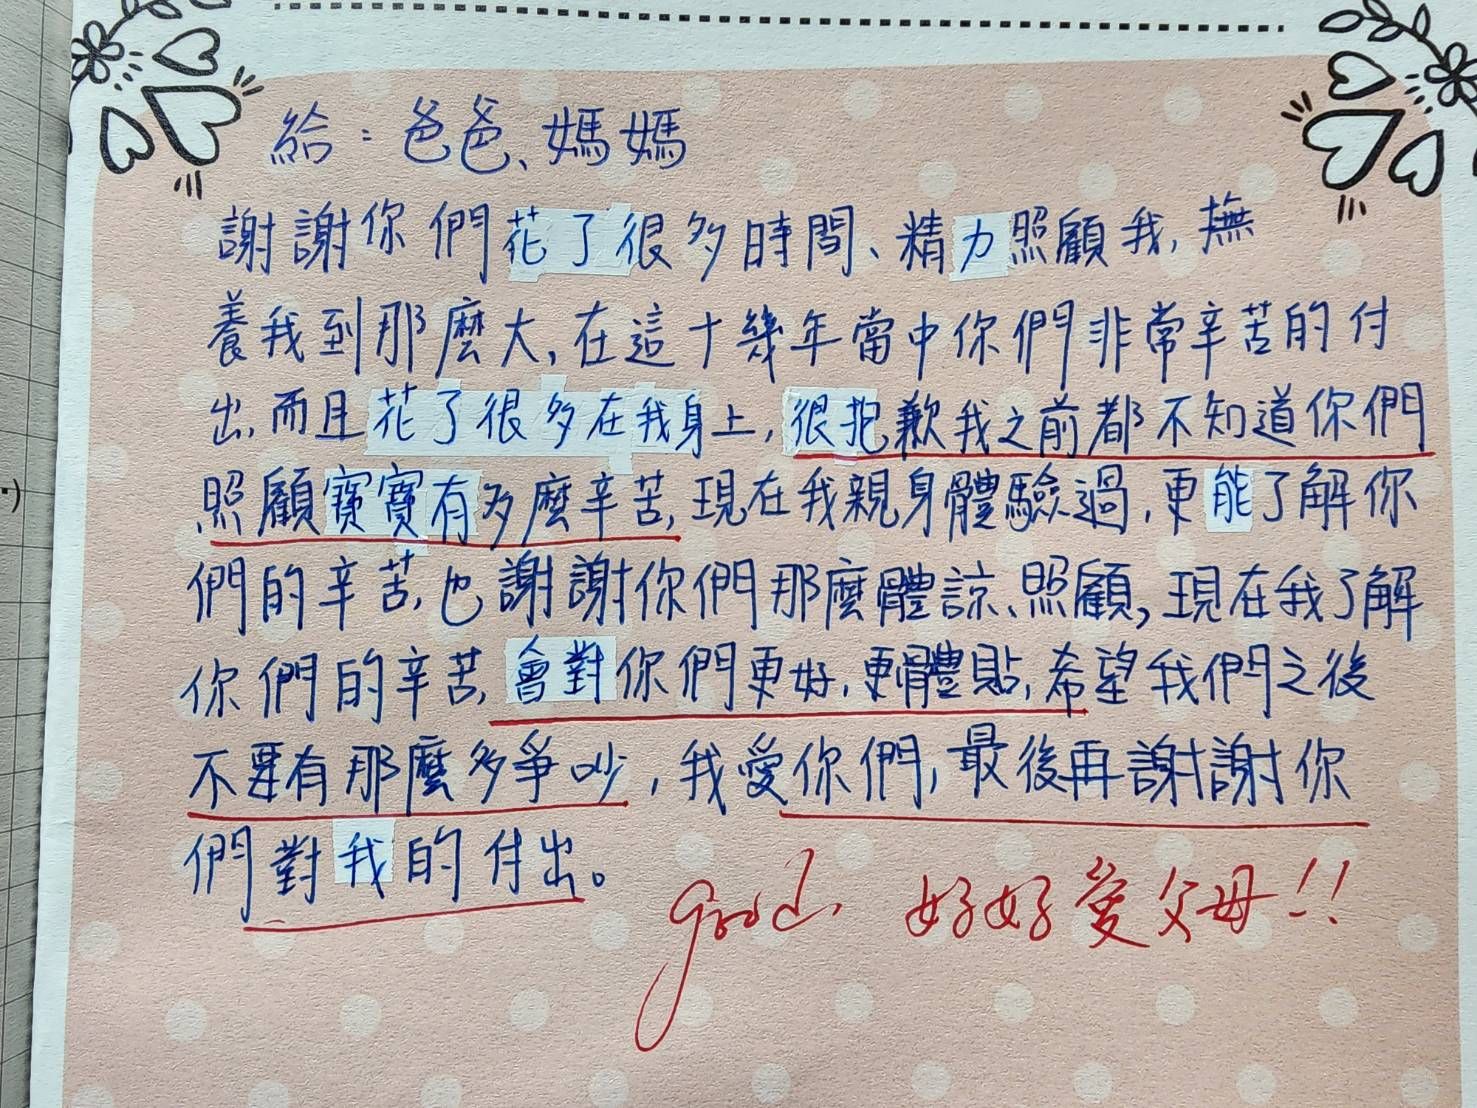 給：爸爸、媽媽
謝謝你們花了很多時間、精力照顧我,撫
養我到那麼大,在這十幾年當中你們非常辛苦的付
出,而且花了很多在我身上,很抱歉我之前都不知道你們
照顧寶寶有多麼辛苦,現在我親身體驗過,更能了解你
們的辛苦,也謝謝你們那麼體諒、照顧,現在我了解
你們的辛苦,會對你們更好,更體貼,希望我們之後
不要有那麼多爭吵,我愛你們,最後再謝謝你
們對我的付出。
good. 好好愛父母!!